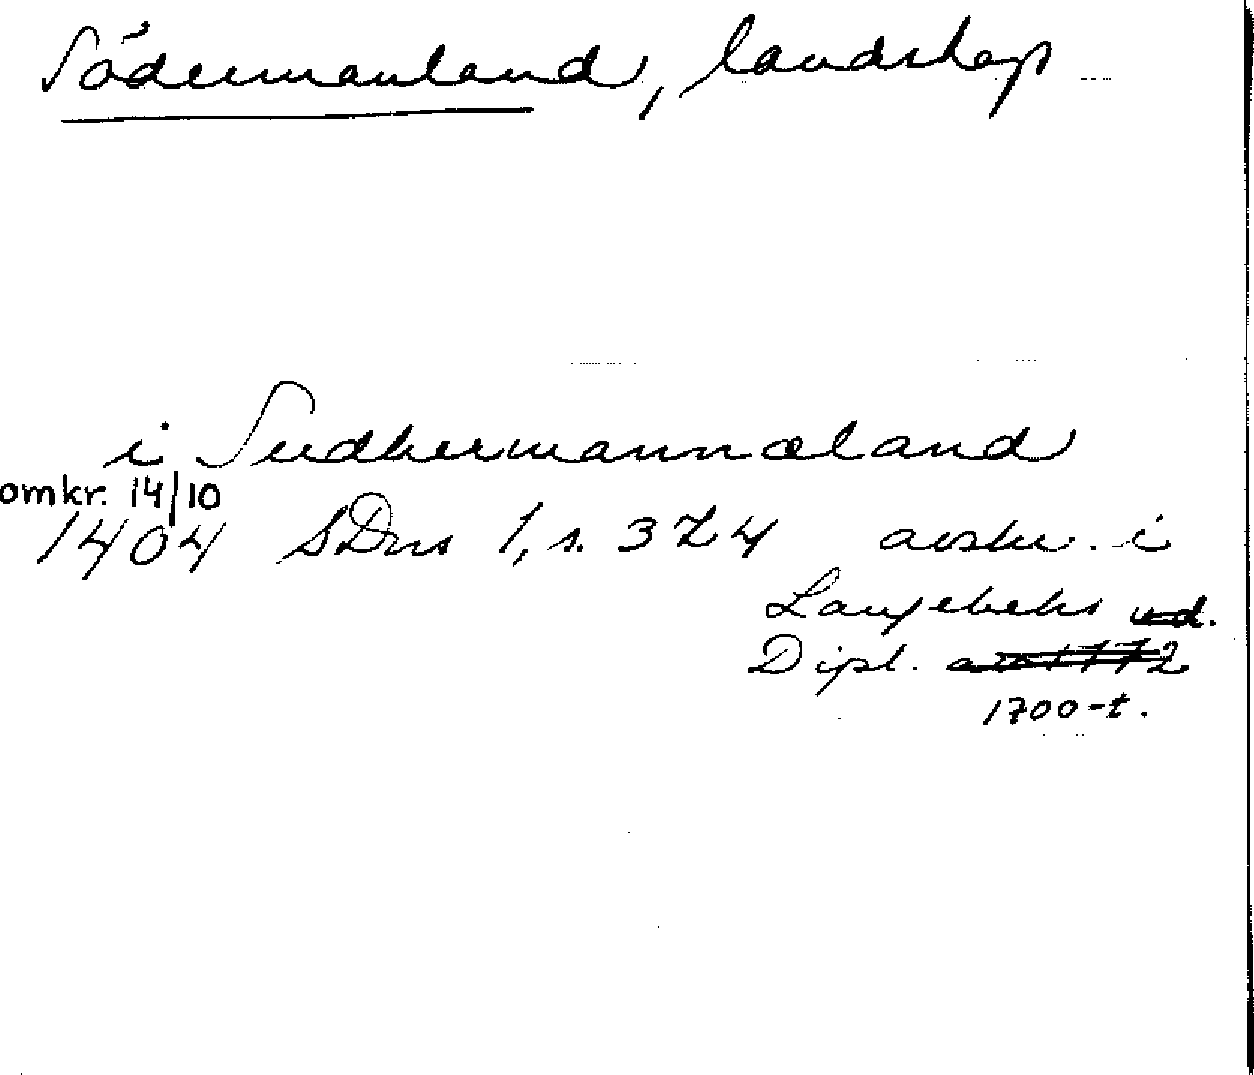 Södermanland, landskap
i Sudhermannaland
omkr. 14/10
1404 SDns 1, s. 324 avskr. i
Langebeks
Dipl.
1700-t.